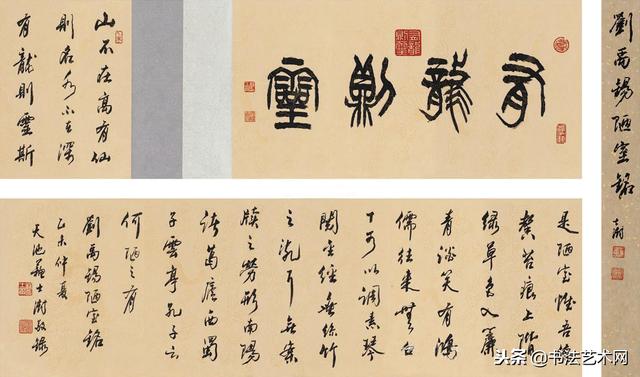 有龍則靈
山不在高有仙
則名水不在深
有龍則靈斯
是陋室惟吾德
馨苔痕上階
緑草色入簾
青談笑有鴻
儒往来無白
丁可以調素琴
閱金經無絲竹
之亂耳無案
牘之勞形南陽
諸葛廬西蜀
子雲亭孔子云
何陋之有
劉禹錫陋室銘
乙未仲夏
天池蘇士澍敬録
劉禹錫陋室銘
士澍
头条 @书法艺术网